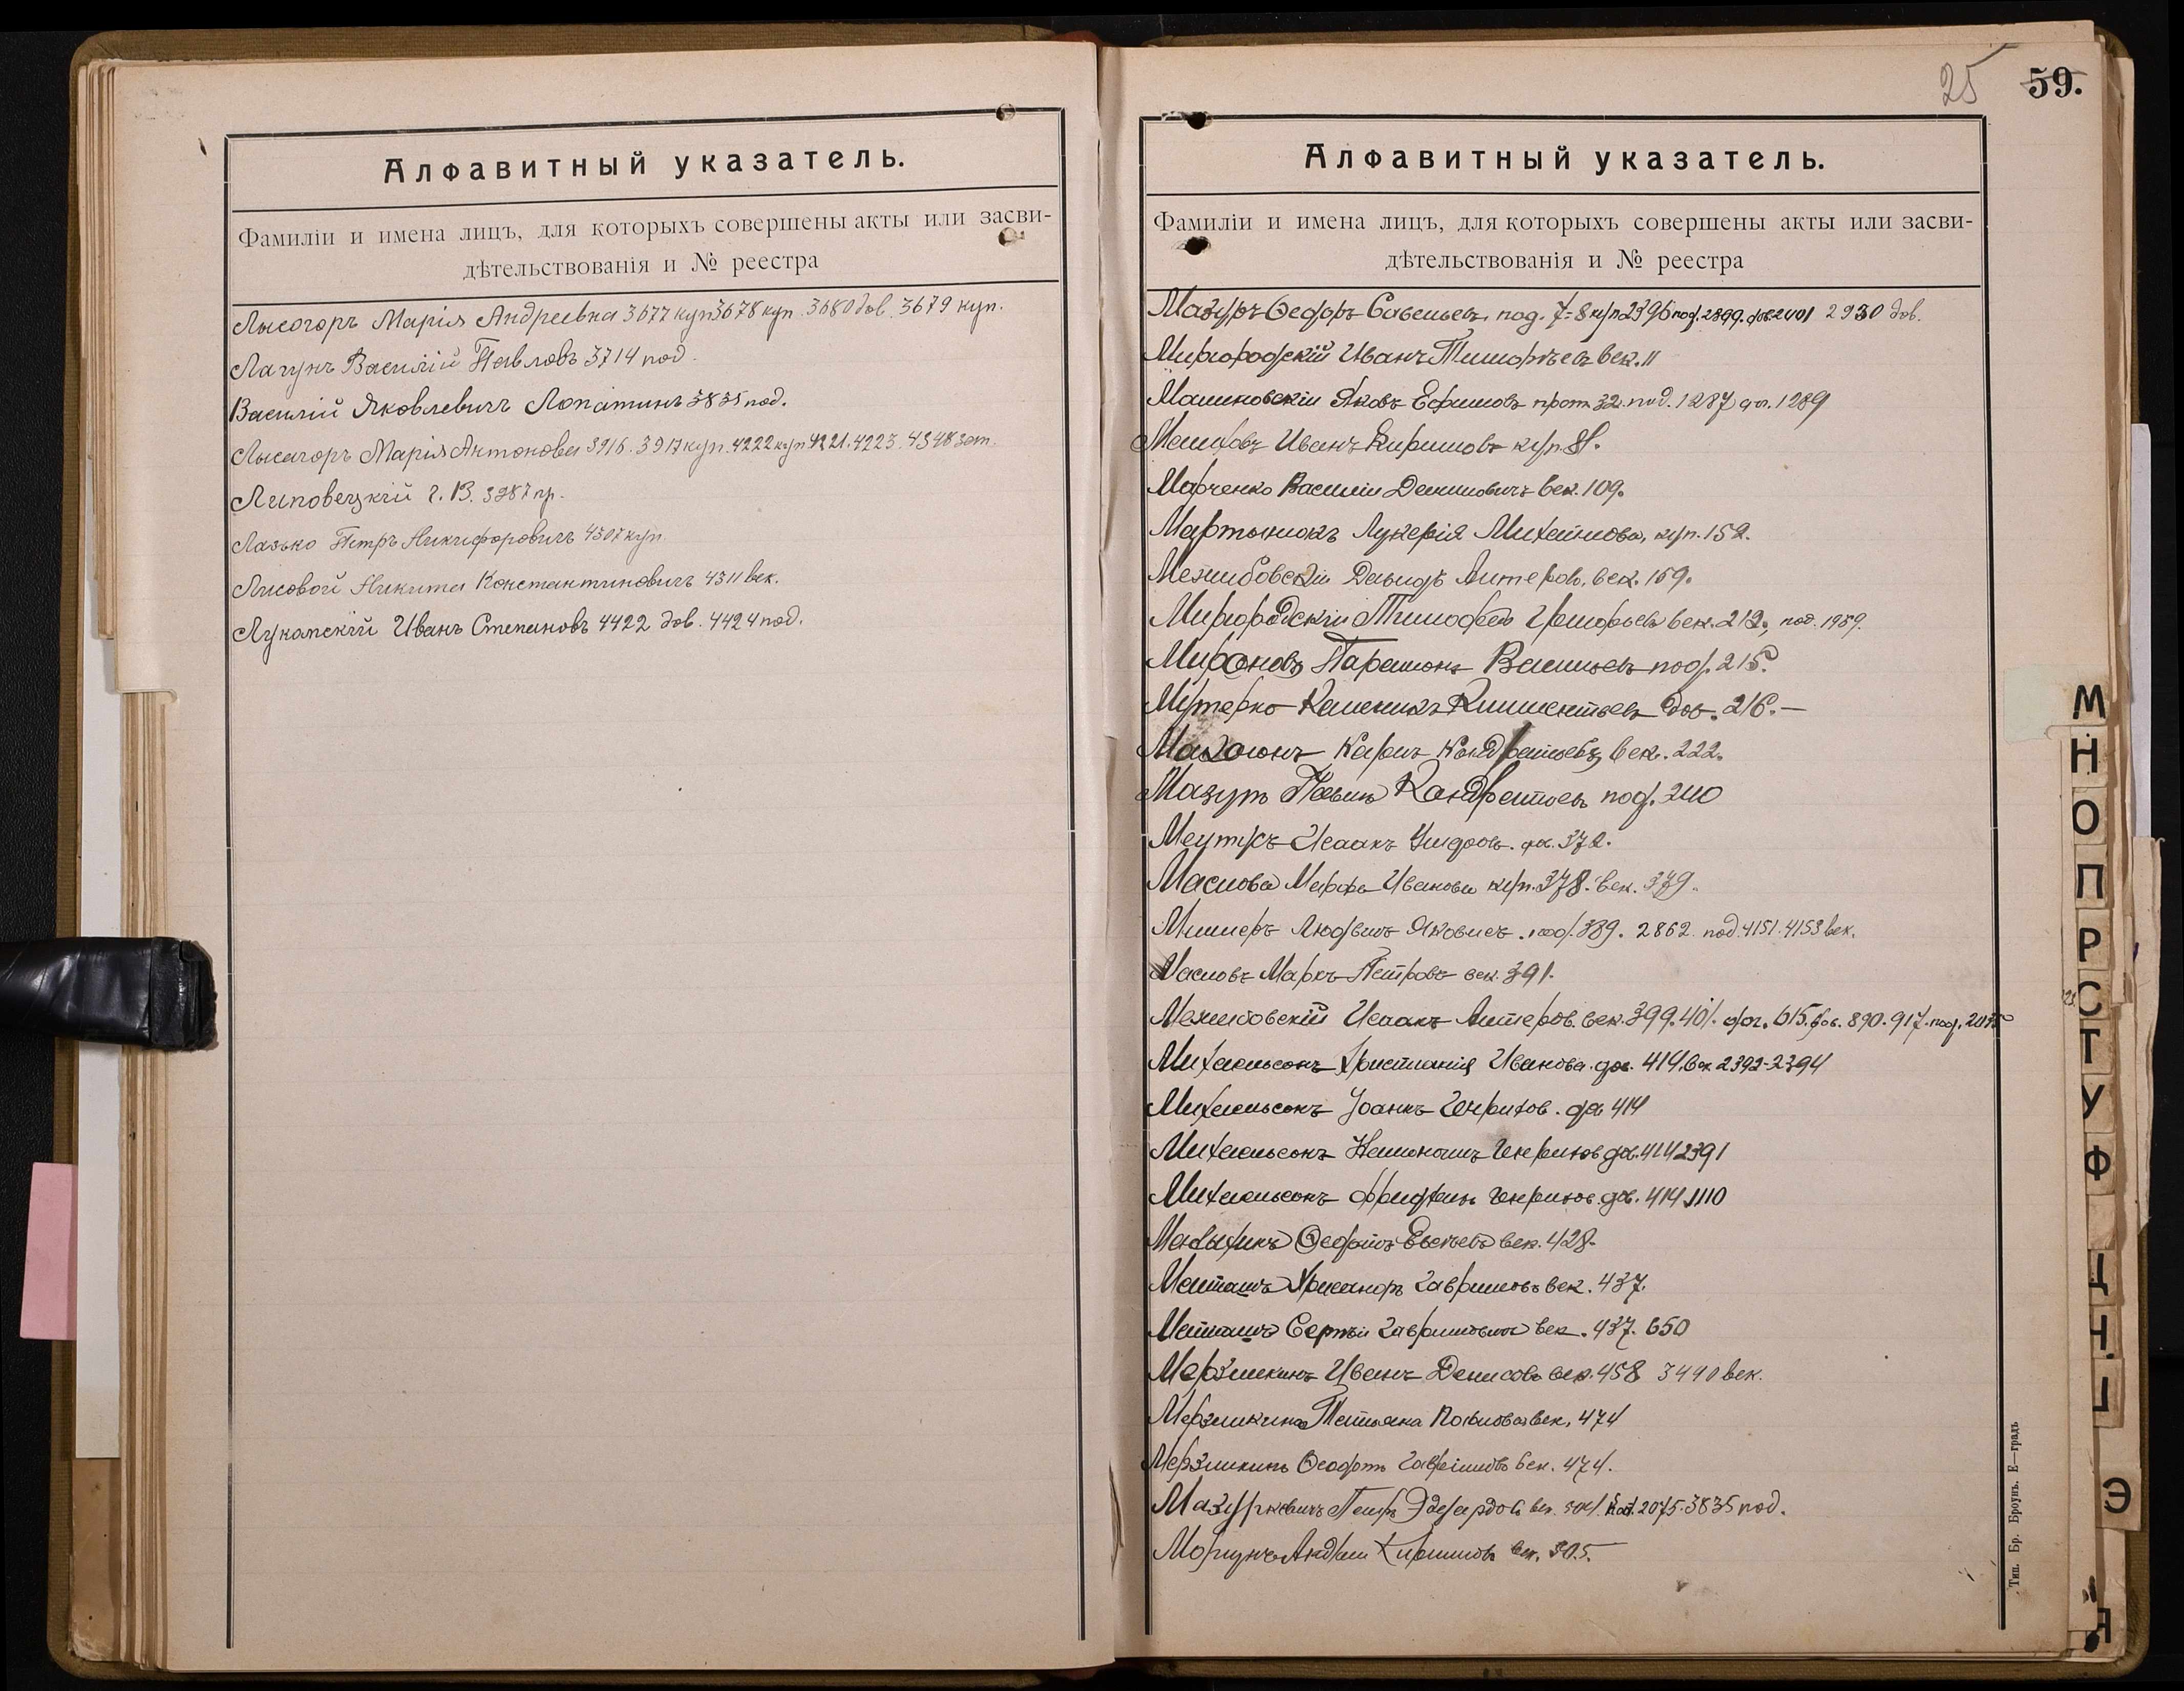 Алфавитный указатель.
Фамиліи и имена лицъ, для которыхъ совершены акты или засви-
дѣтельствованія и № реестра
Лысогоръ Марія Андреевна 3677 куп 3678 куп. 3680 дов. 3679 куп.
Лагунъ Василій Павловъ 3714 под.
Василій Яковлевичъ Лопатинъ 3835 под.
Лысогоръ Марія Антонова 3916. 3917 куп. 4222 куп 4221. 4223. 4348
Липовецкій Г. В. 3287 пр.
Лазько Петръ Никифоровичъ 4307 куп.
Лисовой Никита Константиновичъ 4311 век.
Лукомскій Иванъ Степановъ 4422 дов. 4424 под.
25 59.
Алфавитный указатель.
Фамиліи и имена лицъ, для которыхъ совершены акты или засви-
дѣтельствованія и № реестра
Мазуръ Ѳедоръ Савельевъ под. 7-8 куп 2396 под. 2399. дов. 2401 2930 дов.
Миргородскій Иванъ Тимофѣевъ век. 11
Машковскій Яковъ Ефимовъ прот 32. под. 1287 1289
Иванъ Кириловъ куп. 81.
Марченко Василій век. 109.
Мартынюкъ Лукерія Михайлова, куп. 152.
Межибовскій Давидъ век. 159.
Миргородскій Тимофей Григорьевъ век. 212, под. 1959.
Мироновъ Парамонъ Васильевъ под. 215.
дов. 216.—
Карпъ Кондратьевъ, век. 222.
Мазуръ Павелъ Кондратьевъ под. 240
Исаакъ дов. 372.
Маслова Марфа Иванова куп. 378. век. 379.
Миллеръ Людвигъ Яковлев. под. 389. 2862 под. 4151. 4153 век.
Масловъ Маркъ Петровъ век. 391.
Межибовскій Исаакъ век. 399. 401. 615. дов. 890. 917. под.
Михаельсонъ Христіанія Иванова дов. 414. век 2392-2394
Михаельсонъ Іоаннъ Генрихов. дов 414
Михаельсонъ Генрихов дов. 414 2391
Михаельсонъ Фридрихъ Генрихов. дов. 414 1110
век. 428.
Хрисанфъ Гавриловъ век. 437.
Сергѣй Гавриловъ век. 437. 650
Мерзликинъ Иванъ Денисовъ век. 458 3440 век.
Мерзликина Татьяна век. 474
Мерзликинъ Гавриловъ век. 474.
Мазуркевичъ Петръ Эдуардов. век. 2075. 3835 под.
Моргунъ Андрей Кириловъ век. 505.
М
Н
О
П
Р
С
Т
У
Ф
Э
Я
Тип. Бр. Броунъ. Е—градъ